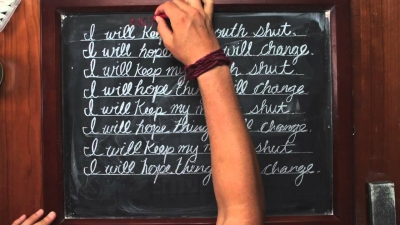 I will shut.
I will hope will change.
I will keep my shut.
I will hope will change.
I will keep my shut.
I will hope change.
I will keep my shut.
I will hope change.